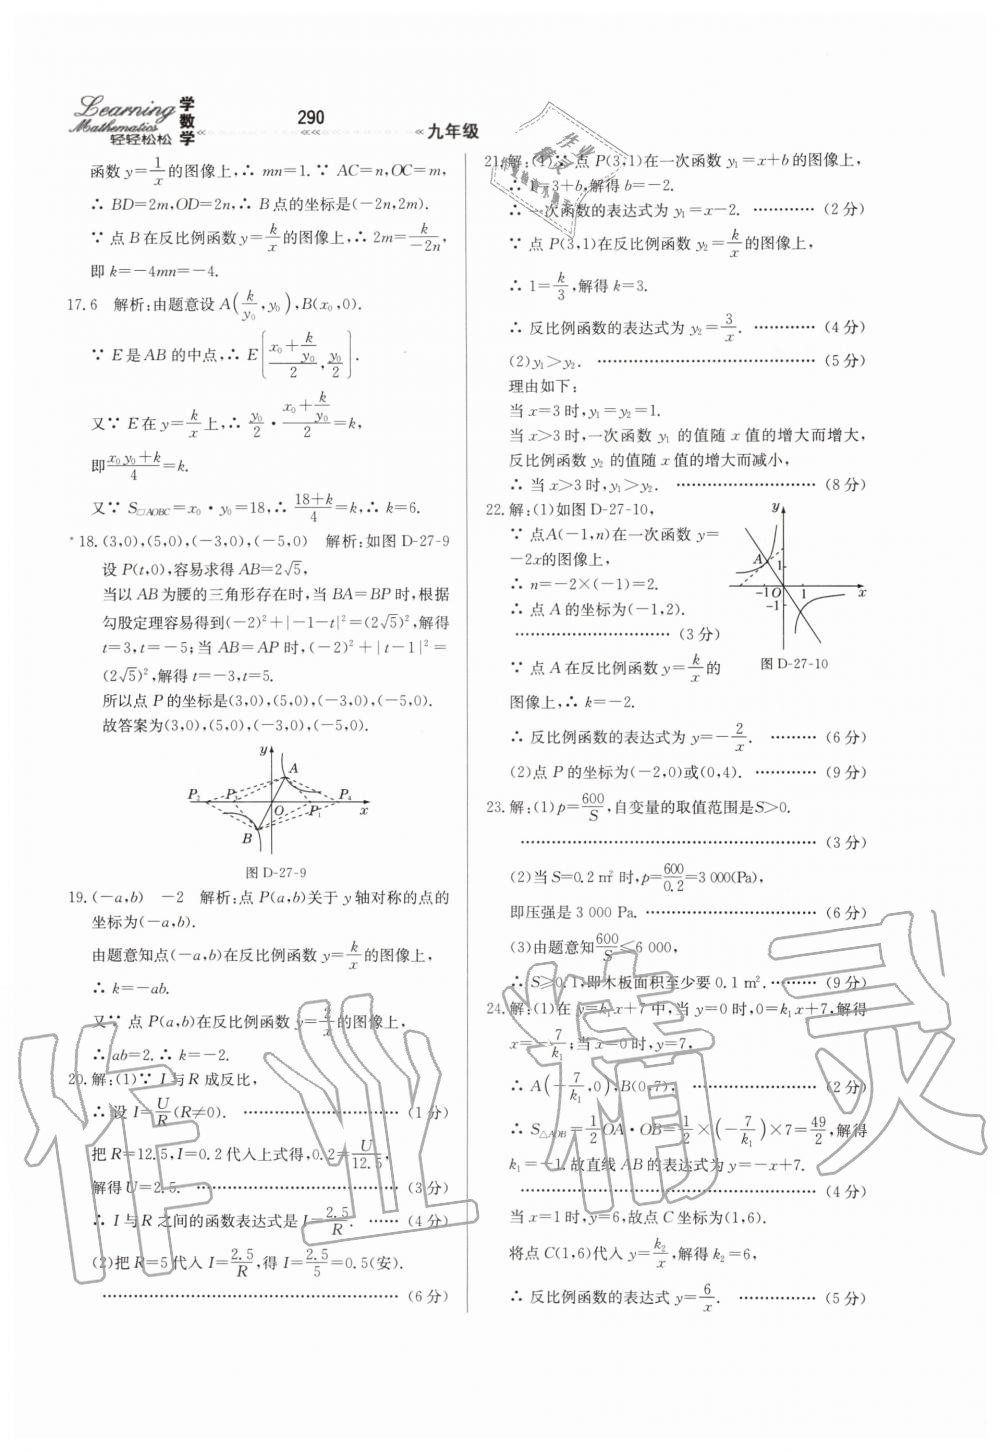 Learning
Mathematics
轻轻松松
学数学
290
九年级
函数y=1/x的图像上,∴ mn=1.∵ AC=n,OC=m,
∴ BD=2m,OD=2n,∴ B点的坐标是(-2n,2m).
∵ 点B在反比例函数y=k/x的图像上,∴ 2m=k/-2n,
即k=-4mn=-4.
17.6 解析:由题意设A(k/y₀,y₀),B(x₀,0).
∵ E是AB的中点,∴ E[(x₀+k/y₀)/2,y₀/2].
又∵ E在y=k/x上,∴ y₀/2·(x₀+k/y₀)/2=k,
即(x₀y₀+k)/4=k.
又∵ S□AOBC=x₀·y₀=18,∴ (18+k)/4=k,∴ k=6.
*18.(3,0),(5,0),(-3,0),(-5,0) 解析:如图D-27-9
设P(t,0),容易求得AB=2√5,
当以AB为腰的三角形存在时,当BA=BP时,根据
勾股定理容易得到(-2)²+|-1-t|²=(2√5)²,解得
t=3,t=-5;当AB=AP时,(-2)²+|t-1|²=
(2√5)²,解得t=-3,t=5.
所以点P的坐标是(3,0),(5,0),(-3,0),(-5,0).
故答案为(3,0),(5,0),(-3,0),(-5,0).
y
A
P₂ P₃ O P₁ P₄ x
B
图D-27-9
19.(-a,b) -2 解析:点P(a,b)关于y轴对称的点的
坐标为(-a,b).
由题意知点(-a,b)在反比例函数y=k/x的图像上,
∴ k=-ab.
又∵ 点P(a,b)在反比例函数y=2/x的图像上,
∴ ab=2.∴ k=-2.
20.解:(1)∵ I与R成反比,
∴ 设I=U/R(R≠0). ………………………(1分)
把R=12.5,I=0.2代入上式得,0.2=U/12.5,
解得U=2.5. ………………………………(3分)
∴ I与R之间的函数表达式是I=2.5/R. ……(4分)
(2)把R=5代入I=2.5/R,得I=2.5/5=0.5(安).
………………………………………………(6分)
21.解:(1)∵ 点P(3,1)在一次函数y₁=x+b的图像上,
∴ 1=3+b,解得b=-2.
∴ 一次函数的表达式为y₁=x-2. …………(2分)
∵ 点P(3,1)在反比例函数y₂=k/x的图像上,
∴ 1=k/3,解得k=3.
∴ 反比例函数的表达式为y₂=3/x. …………(4分)
(2)y₁>y₂. …………………………………(5分)
理由如下:
当x=3时,y₁=y₂=1.
当x>3时,一次函数y₁的值随x值的增大而增大,
反比例函数y₂的值随x值的增大而减小,
∴ 当x>3时,y₁>y₂. ……………………(8分)
22.解:(1)如图D-27-10,
∵ 点A(-1,n)在一次函数y=
-2x的图像上,
∴ n=-2×(-1)=2.
∴ 点A的坐标为(-1,2).
…………………………(3分)
y
A 1
-1 O 1 x
-1
图D-27-10
∵ 点A在反比例函数y=k/x的
图像上,∴ k=-2.
∴ 反比例函数的表达式为y=-2/x. ………(6分)
(2)点P的坐标为(-2,0)或(0,4). …………(9分)
23.解:(1)p=600/S,自变量的取值范围是S>0.
………………………………………………(3分)
(2)当S=0.2 m²时,p=600/0.2=3 000(Pa),
即压强是3 000 Pa. …………………………(6分)
(3)由题意知600/S≤6 000,
∴ S≥0.1,即木板面积至少要0.1 m². ………(9分)
24.解:(1)在y=k₁x+7中,当y=0时,0=k₁x+7,解得
x=-7/k₁;当x=0时,y=7,
∴ A(-7/k₁,0),B(0,7), …………………(2分)
∴ S△AOB=1/2OA·OB=1/2×(-7/k₁)×7=49/2,解得
k₁=-1.故直线AB的表达式为y=-x+7.
………………………………………………(4分)
当x=1时,y=6,故点C坐标为(1,6).
将点C(1,6)代入y=k₂/x,解得k₂=6,
∴ 反比例函数的表达式y=6/x. ……………(5分)
作业精灵